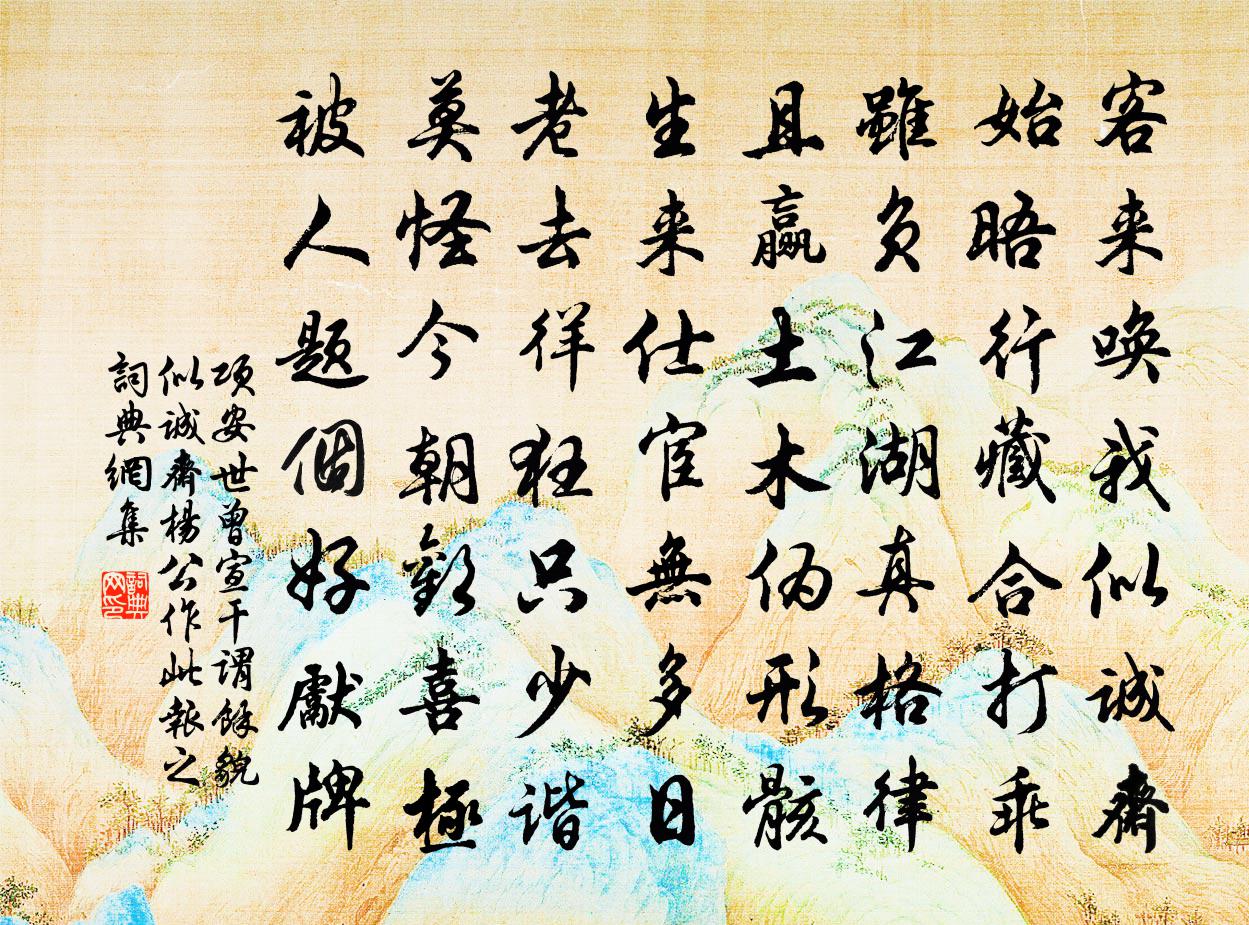 客来唤我似诚斋
始晤行藏合打乖
雖负江湖真格律
且赢土木伪形骸
生来仕宦無多日
老去徉狂只少谐
莫怪今朝歡喜極
被人題個好獻牌
项安世曾宣干谓余貌
似诚斋楊公作此報之
詞典網集
詞典网印